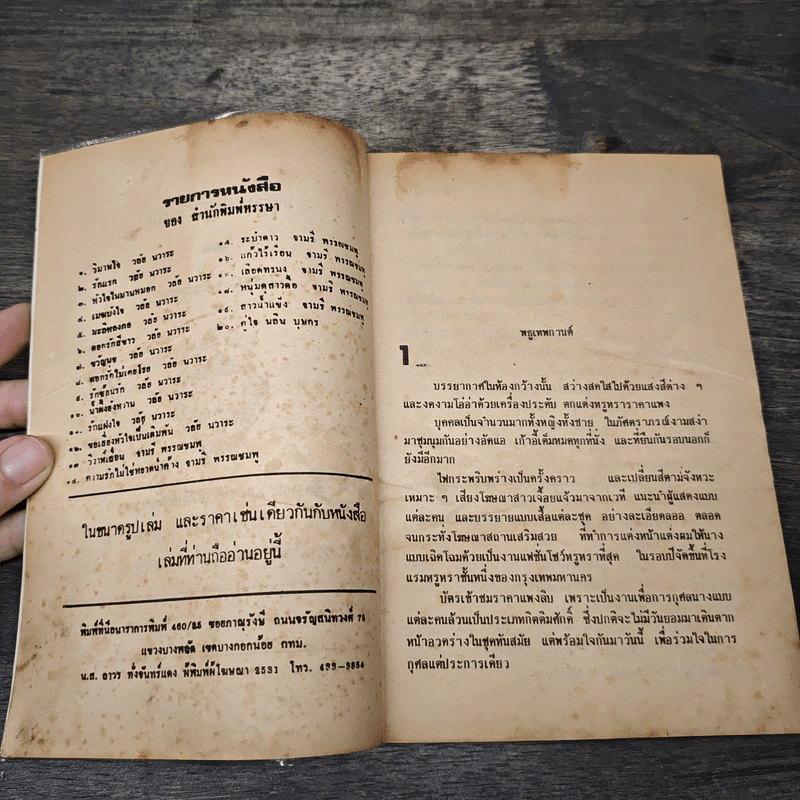 รายการหนังสือ
ของ สำนักพิมพ์หรรษา
๑. วิมานใจ วลัย นวาระ
๒. รักแรก วลัย นวาระ
๓. หัวใจในม่านหมอก วลัย นวาระ
๔. เมฆบังใจ วลัย นวาระ
๕. มะลิหลงกอ วลัย นวาระ
๖. ดอกรักสีขาว วลัย นวาระ
๗. ขวัญนุช วลัย นวาระ
๘. ดอกรักไม่เคยโรย วลัย นวาระ
๙. รักซ้อนรัก วลัย นวาระ
๑๐. น้ำผึ้งยังหวาน วลัย นวาระ
๑๑. รักแฝงใจ วลัย นวาระ
๑๒. ขอเลี้ยงหัวใจเป็นเดิมพัน วลัย นวาระ
๑๓. วิวาห์เลื่อน จามรี พรรณชมพู
๑๔. ความรักไม่ใช่หยาดน้ำค้าง จามรี พรรณชมพู
๑๕. ระบำดาว จามรี พรรณชมพู
๑๖. แก้วไร้เรือน จามรี พรรณชมพู
๑๗. เลือดทรนง จามรี พรรณชมพู
๑๘. หนุ่มดุสาวดื้อ จามรี พรรณชมพู
๑๙. สาวน้ำแข็ง จามรี พรรณชมพู
๒๐. คู่ใจ นลิน บุษกร
ในขนาดรูปเล่ม และราคาเช่นเดียวกันกับหนังสือ
เล่มที่ท่านถืออ่านอยู่นี้
พิมพ์ที่ธนาราการพิมพ์ 460/25 ซอยภาณุรังษี ถนนจรัญสนิทวงศ์ 75
แขวงบางพลัด เขตบางกอกน้อย กทม.
น.ส. ถาวร ทั่งจันทร์แดง ผู้พิมพ์ผู้โฆษณา 2531 โทร. 433-3854
พธูเทพกานต์
1 ...
บรรยากาศในห้องกว้างนั้น สว่างสดใสไปด้วยแสงสีต่าง ๆ
และงดงามโอ่อ่าด้วยเครื่องประดับ ตกแต่งหรูหราราคาแพง
บุคคลเป็นจำนวนมากทั้งหญิงทั้งชาย ในภัศตราภรณ์งามสง่า
มาชุมนุมกันอย่างอัดแอ เก้าอี้เต็มหมดทุกที่นั่ง และที่ยืนกันรอบนอกก็
ยังมีอีกมาก
ไฟกระพริบพร่างเป็นครั้งคราว และเปลี่ยนสีตามจังหวะ
เหมาะ ๆ เสียงโฆษณาสาวเจื้อยแจ้วมาจากเวที แนะนำผู้แสดงแบบ
แต่ละคน และบรรยายแบบเสื้อแต่ละชุด อย่างละเอียดลออ ตลอด
จนกระทั่งโฆษณาสถานเสริมสวย ที่ทำการแต่งหน้าแต่งผมให้นาง
แบบเฉิดโฉมด้วยเป็นงานแฟชั่นโชว์หรูหราที่สุด ในรอบปีจัดขึ้นที่โรง
แรมหรูหราชั้นหนึ่งของกรุงเทพมหานคร
บัตรเข้าชมราคาแพงลิบ เพราะเป็นงานเพื่อการกุศลนางแบบ
แต่ละคนล้วนเป็นประเภทกิตติมศักดิ์ ซึ่งปกติจะไม่มีวันยอมมาเดินตาก
หน้าอวดร่างในชุดทันสมัย แต่พร้อมใจกันมาวันนี้ เพื่อร่วมใจในการ
กุศลแต่ประการเดียว